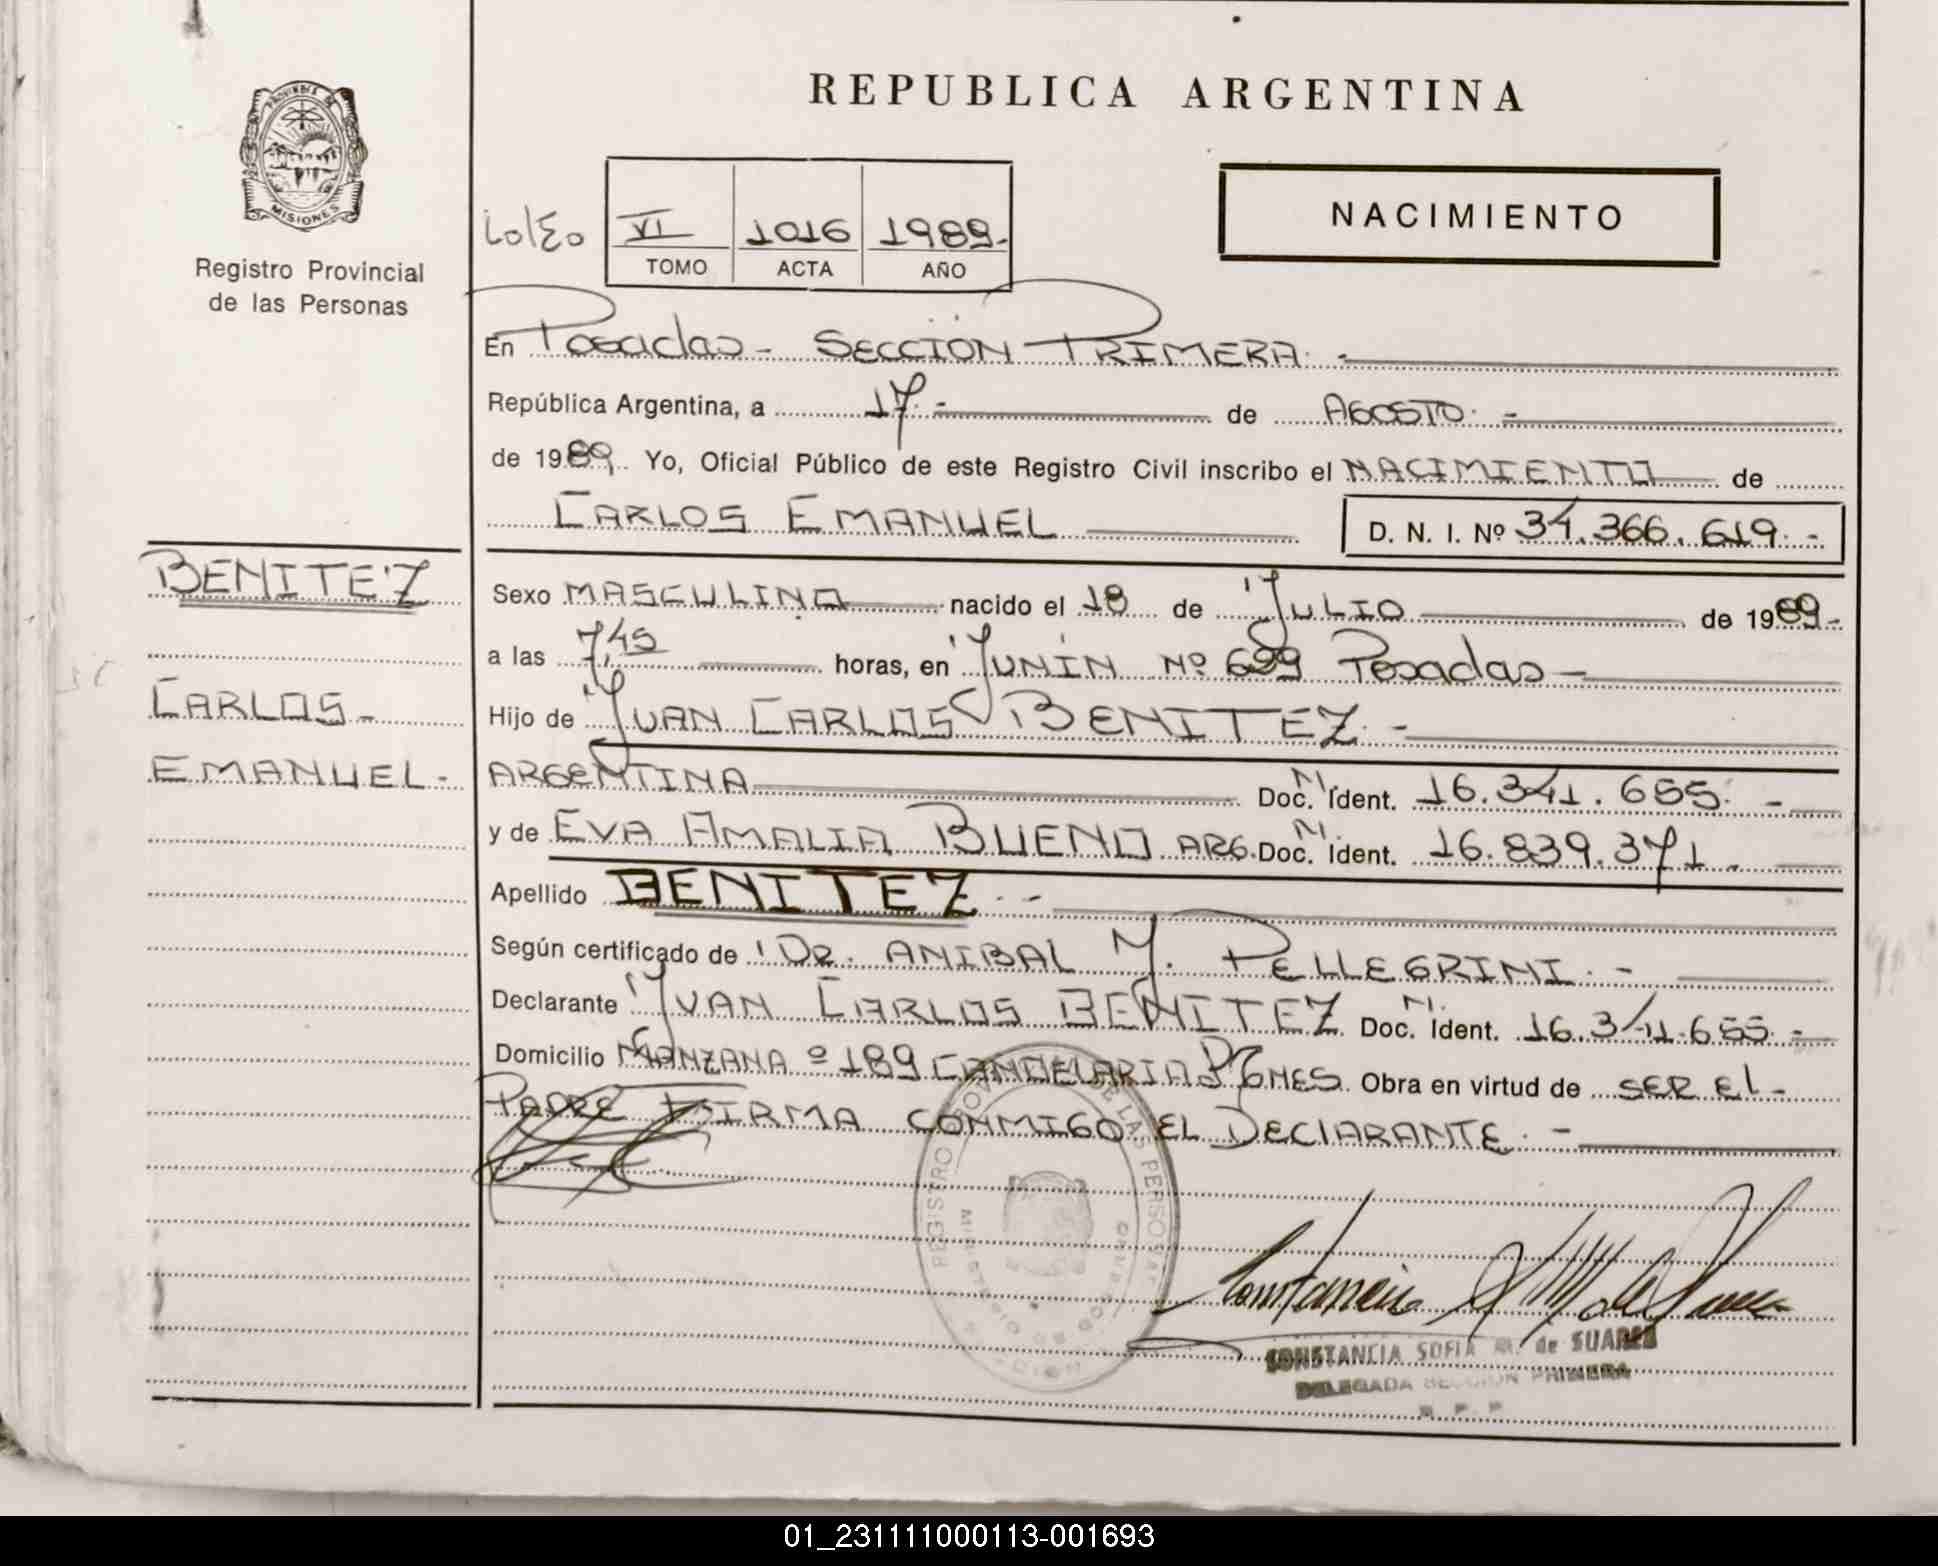 REPUBLICA ARGENTINA
PROVINCIA DE
MISIONES
Registro Provincial
de las Personas
NACIMIENTO
VI 1016 1989.-
TOMO ACTA AÑO
En Posadas - SECCION PRIMERA.-
República Argentina, a 17.- de AGOSTO.-
de 1989. Yo, Oficial Público de este Registro Civil inscribo el NACIMIENTO de
CARLOS EMANUEL
D. N. I. Nº 34.366.619.-
BENITEZ
CARLOS-
EMANUEL-
Sexo MASCULINO nacido el 18 de JULIO de 1989.-
a las 7,45 horas, en JUNIN Nº 699 Posadas-
Hijo de JUAN CARLOS BENITEZ.-
ARGENTINA Doc. Ident. M 16.341.655.-
y de EVA AMALIA BUENO ARG. Doc. Ident. M. 16.839.371.-
Apellido BENITEZ.-
Según certificado de Dr. ANIBAL M. PELLEGRINI.-
Declarante JUAN CARLOS BENITEZ Doc. Ident. M. 16.341.655.-
Domicilio MANZANA º 189 CANDELARIA Obra en virtud de SER El-
PADRE FIRMA CONMIGO EL DECLARANTE.-
REGISTRO PROV. DE LAS PERSONAS
MINISTERIO DE GOBIERNO
CONSTANCIA SOFIA M. de SUAREZ
DELEGADA SECCION PRIMERA
R. P. P.
01_231111000113-001693